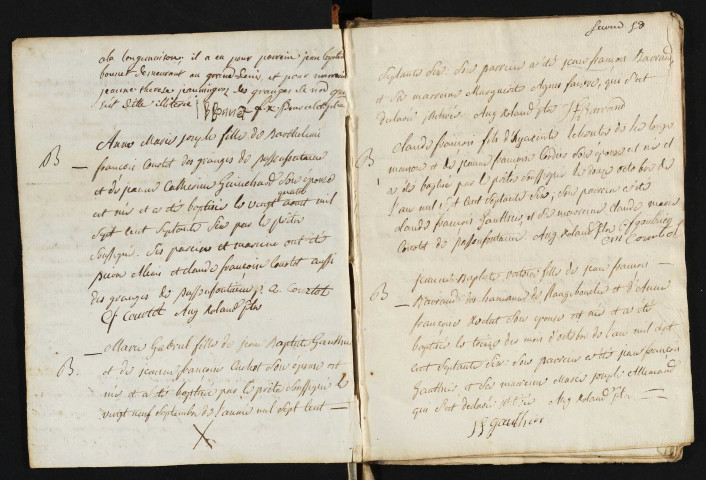 a la longuaisons, il a eu pour parrein jean baptiste
bonnet demeurant au grand denis et pour marreine
jeanne therese jeanningros des granges de
soit ditte illiterée JB Bonnet f x
B Anne Marie josephe fille de Barthelemi
françois Courlet des granges de passonfontaine
et de jeanne Catherine Guinchard son épouse
est née et a été baptisée le vingt quatre aout mil
sept cent septante six par le prêtre
soussigné. Ses parreins et marreine ont été
pierre Alexis et claude françoise Courlet aussi
des granges de passonfontaine p. a. Courlet
Cf Courlet Aug Roland ptre
B. Marie Gabriel fille de jean Baptiste Gauthier
et de jeanne françoise Cachot son épouse est
née et a été baptisée par le prêtre soussigné le
vingt neuf septembre de l'année mil sept cent
Second 58
septante six son parrein a été jean françois Barrand
et sa marreine Marguerite Agnes faivre, qui s'est
déclarée illiterée Aug Roland ptre Jf Barrand
B Claude françois fils d'hyacinthe de la longe
maison et de jeanne françoise Cordier son épouse est né et
a été baptisé par le prêtre soussigné le douze octobre de
l'an mil sept cent septante six, son parrein a été
claude françois Gauthier, et sa marreine claude marie
Courlet de passonfontaine. Aug Roland ptre Cf gauthier
cm Courlet
B jeanne Baptiste victoire fille de jean françois
Barrand des hameaux de Naugeboule et d'Anne
françoise Rodat son épouse est née et a été
baptisée le treize du mois d'octobre de l'an mil sept
cent septante six. Son parrein a été jean françois
Gauthier et sa marreine Marie josephe Allemand
qui s'est déclarée illiterée Aug Roland ptre
Jf gauthier